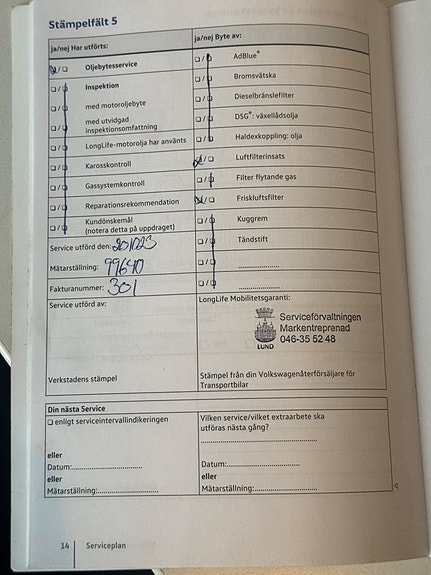 Stämpelfält 5
ja/nej Har utförts:
☑/☐ Oljebytesservice
☐/☐ Inspektion
☐/☐ med motoroljebyte
☐/☐ med utvidgad
inspektionsomfattning
☐/☐ LongLife-motorolja har använts
☐/☐ Karosskontroll
☐/☐ Gassystemkontroll
☐/☐ Reparationsrekommendation
☐/☐ Kundönskemål
(notera detta på uppdraget)
Service utförd den: 201023
Mätarställning: 99640
Fakturanummer: 301
Service utförd av:
Verkstadens stämpel
ja/nej Byte av:
☐/☐ AdBlue®
☐/☐ Bromsvätska
☐/☐ Dieselbränslefilter
☐/☐ DSG®: växellådsolja
☐/☐ Haldexkoppling: olja
☑/☐ Luftfilterinsats
☐/☐ Filter flytande gas
☑/☐ Friskluftsfilter
☐/☐ Kuggrem
☐/☐ Tändstift
☐/☐ ....................
☐/☐ ....................
LongLife Mobilitetsgaranti:
LUND
Serviceförvaltningen
Markentreprenad
046-35 52 48
Stämpel från din Volkswagenåterförsäljare för
Transportbilar
Din nästa Service
☐ enligt serviceintervallindikeringen
eller
Datum:....................
eller
Mätarställning:....................
Vilken service/vilket extraarbete ska
utföras nästa gång?
....................
Datum:....................
eller
Mätarställning:....................
14 Serviceplan